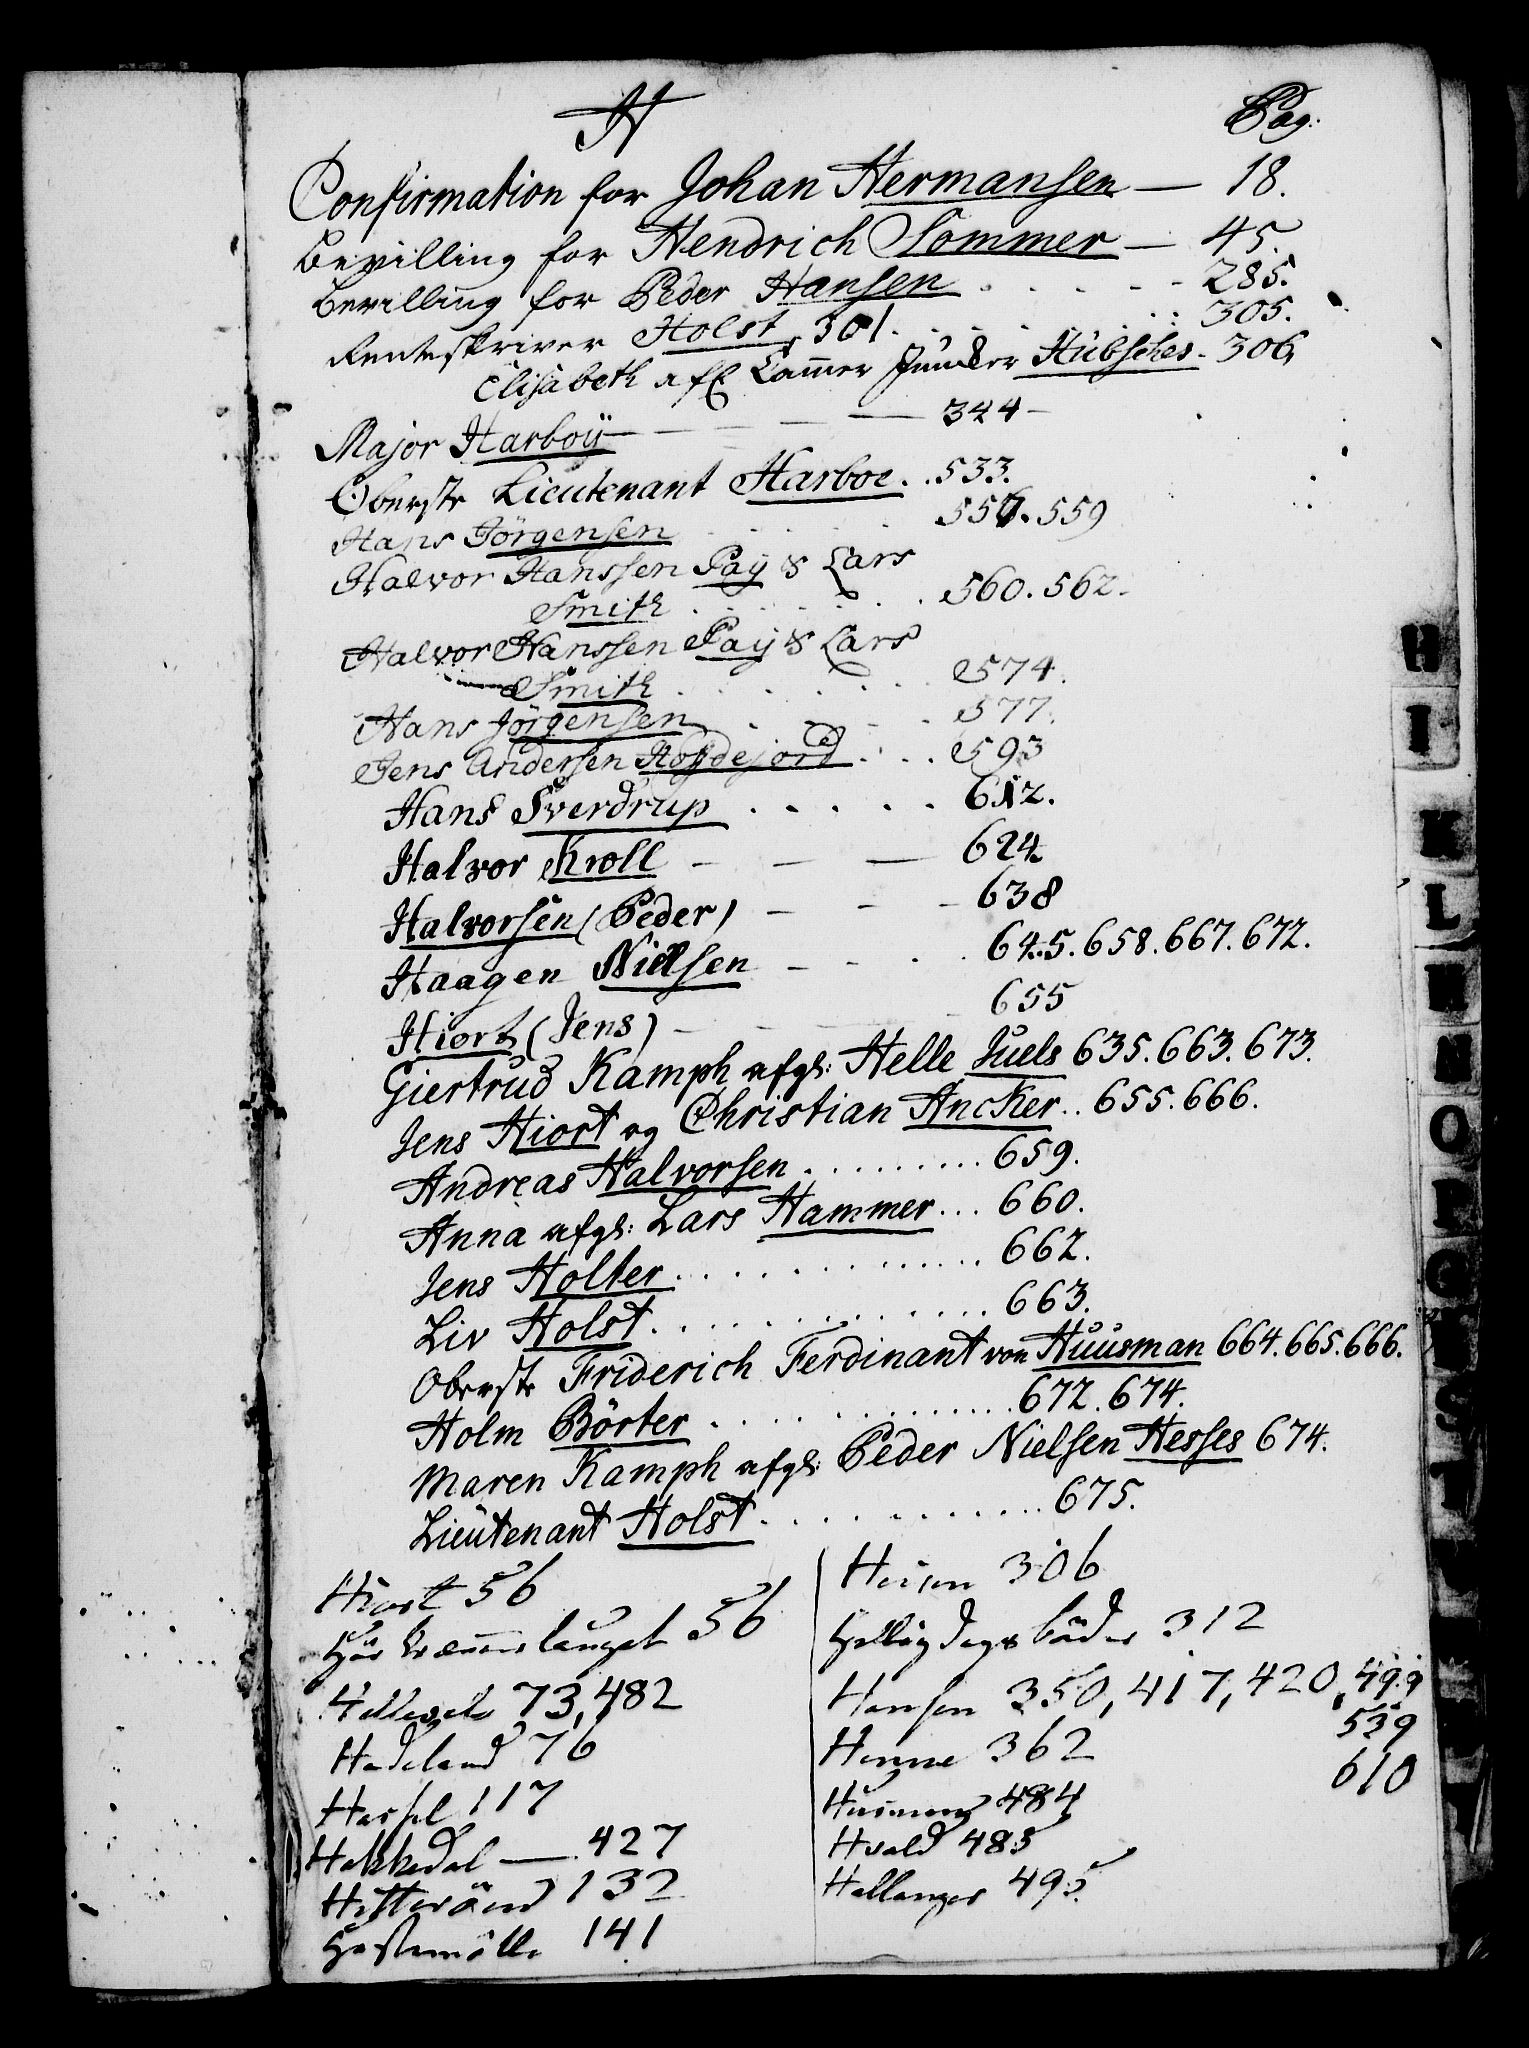 H
Pag:
Confirmation for Johan Hermansen — 18.
Bevilling for Hendrich Sommer — 45.
Bevilling for Peder Hansen . . . . . 285.
Renteskriver Holst, 301. . . . . . . 305.
Elisabeth afl Cammer Juncker Hübsches - 306,
Major Harboÿ — — — — 344 -
Oberste Lieutenant Harboe . . 533.
Hans Jörgensen . . . . . 557. 559
Halvor Hanssen Paÿ & Lars
Smith . . . . . . . 560. 562.
Halvor Hanssen Paÿ & Lars
Smith . . . . . . . 574.
Hans Jörgensen . . . . 577.
Jens Andersen . . . 593
Hans Sverdrup . . . . . 612.
Halvor Kroll — — — 624.
Halvorsen (Peder) — — - 638
Haagen Nielsen - - - . 645. 658. 667. 672.
Hiort (Jens) — - - - 655
Giertrud Kamph afgl: Helle Juels 635. 663. 673.
Jens Hiort og Christian Ancker . . 655. 666.
Andreas Halvorsen . . . . . . . . . 659.
Anna afgl: Lars Hammer . . . 660.
Jens Holter . . . . . . . . . . . . 662.
Liv Holst . . . . . . . . . . . . . 663.
Oberste Friderich Ferdinant von Huusman 664. 665. 666.
Holm Börter . . . . . . . . . . . . . 672. 674.
Maren Kamph afgl: Peder Nielsen Hesses 674.
Lieutenant Holst . . . . . . . . . . . 675.
Hiort 56
56
73, 482
Hadeland 76
117
Hakkedal — 427
132
141
306
Helligdags 312
Hansen 350, 417, 420, 499
539
610
362
484
Hvald 485
495
H
I
K
L
M
N
O
P
Q
R
S
T